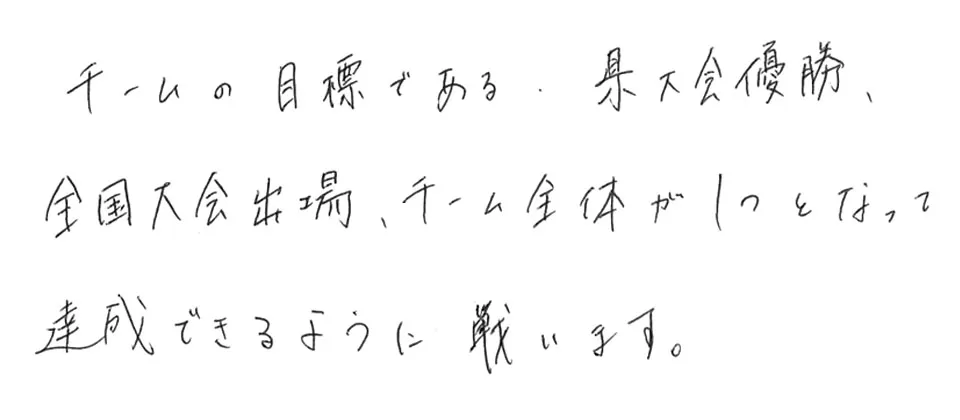 チームの目標である、県大会優勝、
全国大会出場、チーム全体が1つとなって
達成できるように戦います。